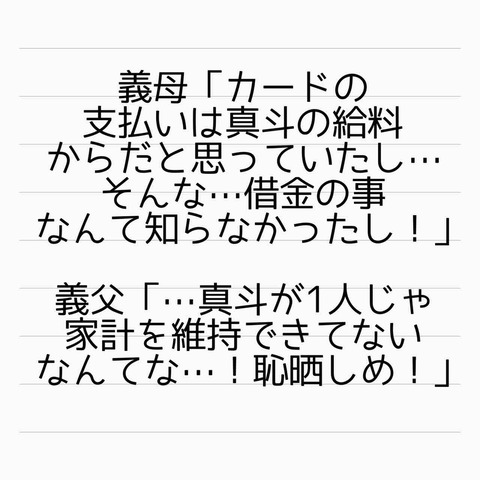 義母「カードの
支払いは真斗の給料
からだと思っていたし…
そんな…借金の事
なんて知らなかったし！」
義父「…真斗が1人じゃ
家計を維持できてない
なんてな…！恥晒しめ！」